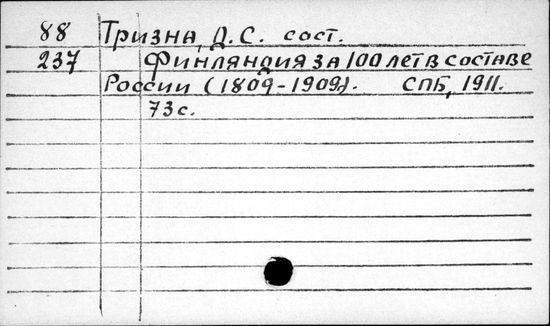 88 Тризна, Д.С. сост.
237 Финляндия за 100 лет в составе
России (1809-1909). СПБ, 1911.
73 с.